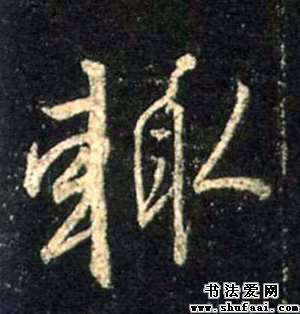 輒
书法爱网
www.shufaai.com